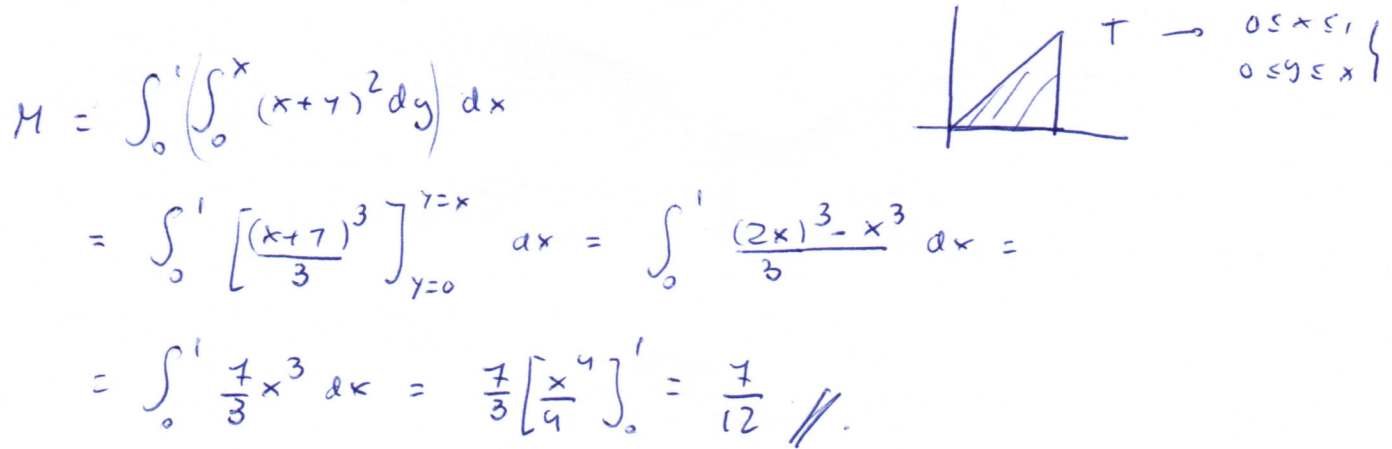 T → 0 ≤ x ≤ 1 }
0 ≤ y ≤ x
M = ∫₀¹ (∫₀ˣ (x+y)² dy) dx
= ∫₀¹ [(x+y)³/3]_{y=0}^{y=x} dx = ∫₀¹ ((2x)³ - x³)/3 dx =
= ∫₀¹ 7/3 x³ dx = 7/3 [x⁴/4]₀¹ = 7/12 //.